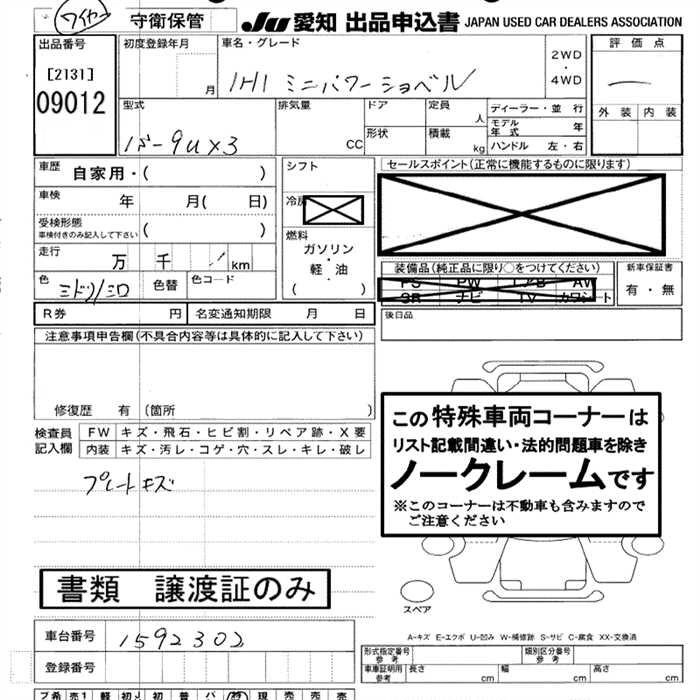 ワイヤー
守衛保管
JU 愛知 出品申込書 JAPAN USED CAR DEALERS ASSOCIATION
出品番号
[2131]
09012
初度登録年月
月
車名・グレード
IHI ミニパワーショベル
2WD
・
4WD
評価点
外装 内装
型式
排気量
CC
ドア
形状
定員
人
積載
kg
ディーラー・並 行
モデル年式 年
ハンドル 左・右
車歴
自家用・( )
車検 年 月( 日)
受検形態
車検付きのみ記入して下さい ( )
走行 万 千 km
色
色替
色コード
シフト
冷房
燃料
ガソリン
・
軽・油
( )
セールスポイント(正常に機能するものに限ります)
装備品(純正品に限り○をつけてください)
PS PW エアB AW
SR ナビ TV カワシート
新車保証書
有・無
R券 円
名変通知期限 月 日
後日品
注意事項申告欄(不具合内容等は具体的に記入して下さい)
修復歴 有 (箇所 )
検査員
記入欄
FW キズ・飛石・ヒビ割・リペア跡・X要
内装 キズ・汚レ・コゲ・穴・スレ・キレ・破レ
プレートキズ
この特殊車両コーナーは
リスト記載間違い・法的問題車を除き
ノークレームです
※このコーナーは不動車も含みますので
ご注意ください
書類 譲渡証のみ
スペア
A-キズ E-エクボ U-凹み W-補修跡 S-サビ C-腐食 XX-交換済
車台番号 1592302
登録番号
形式指定番号
参考
類別区分番号
参考
車庫証明用
参考
長さ cm
幅 cm
高さ cm